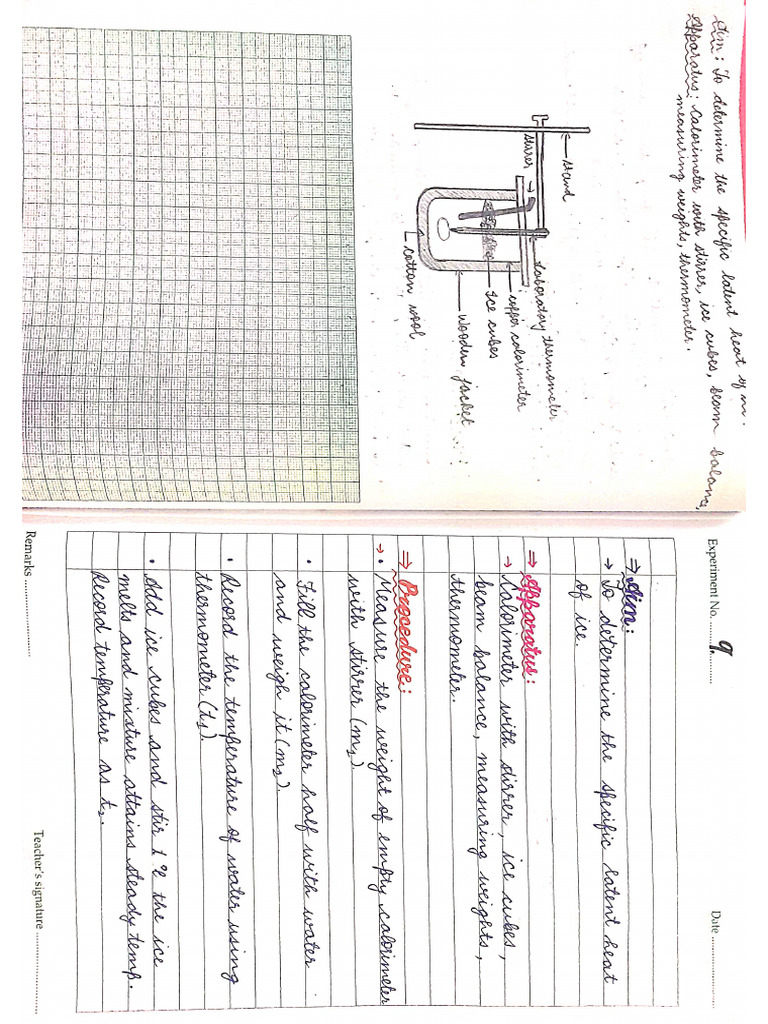 Aim: To determine the specific latent heat of
Apparatus: Calorimeter with stirrer, ice cubes, beam balance,
measuring weights, thermometer.
stand
stirrer
Laboratory thermometer
copper calorimeter
Ice cubes
Wooden jacket
Cotton wool
Experiment No. 9. Date
⇒ Aim:
→ To determine the specific latent heat
of ice.
⇒ Apparatus:
→ Calorimeter with stirrer, ice cubes,
beam balance, measuring weights,
thermometer.
⇒ Procedure:
→ • Measure the weight of empty calorimeter
with stirrer (m₁).
• Fill the calorimeter half with water
and weigh it (m₂).
• Record the temperature of water using
thermometer (t₁).
• Add ice cubes and stir the ice
melts and mixture attains steady temp.
Record temperature as t₂.
Remarks
Teacher's signature